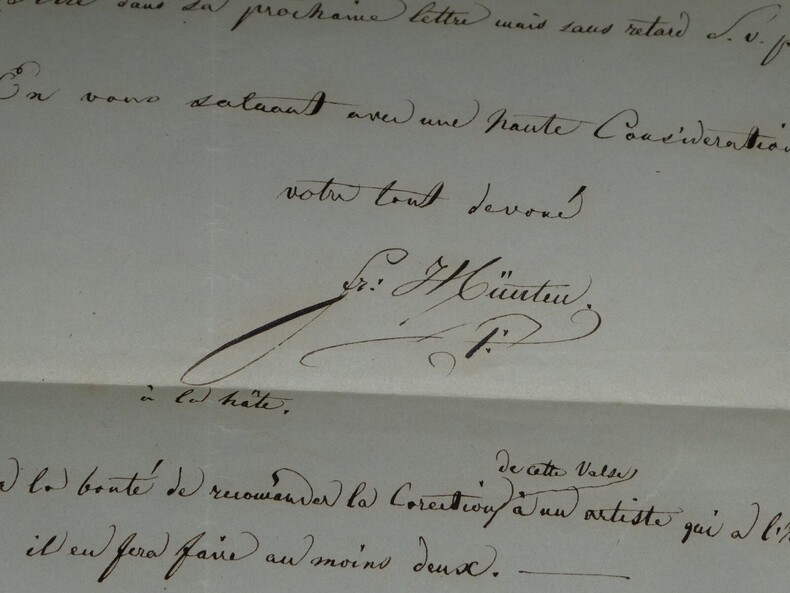 dans sa prochaine lettre mais sans retard S. v. p
En vous saluant avec une haute Consideration
votre tout devoué
fr: Hünten.
à la hâte.
de cette Valse
a la bonté de recomander la Corection à un artiste qui a l'h
il en fera faire au moins deux.